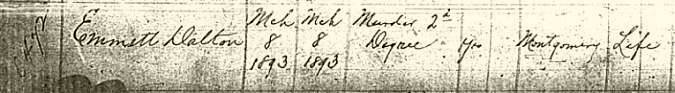 Emmett Dalton Mch 8 1893 Mch 8 1893 Murder 2d Degree Montgomery Life